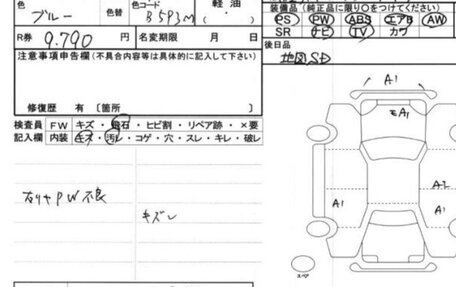 色 ブルー 色替 色コード B593M 軽油
R券 9.790 名変期限 月 日
注意事項申告欄(不具合内容等は具体的に記入して下さい)
修復歴 有 〔箇所 〕
検査員 FW キズ・飛石・ヒビ割・リペア跡・×要
記入欄 内装 キズ・汚レ・コゲ・穴・スレ・キレ・破レ
右リヤPW不良
キズレ
装備品(純正品に限り○をつけてください)
PS PW ABS エアB AW
SR ナビ TV カワ
後日品
地図SD
A1
A1
A1
A2
A1
スペア